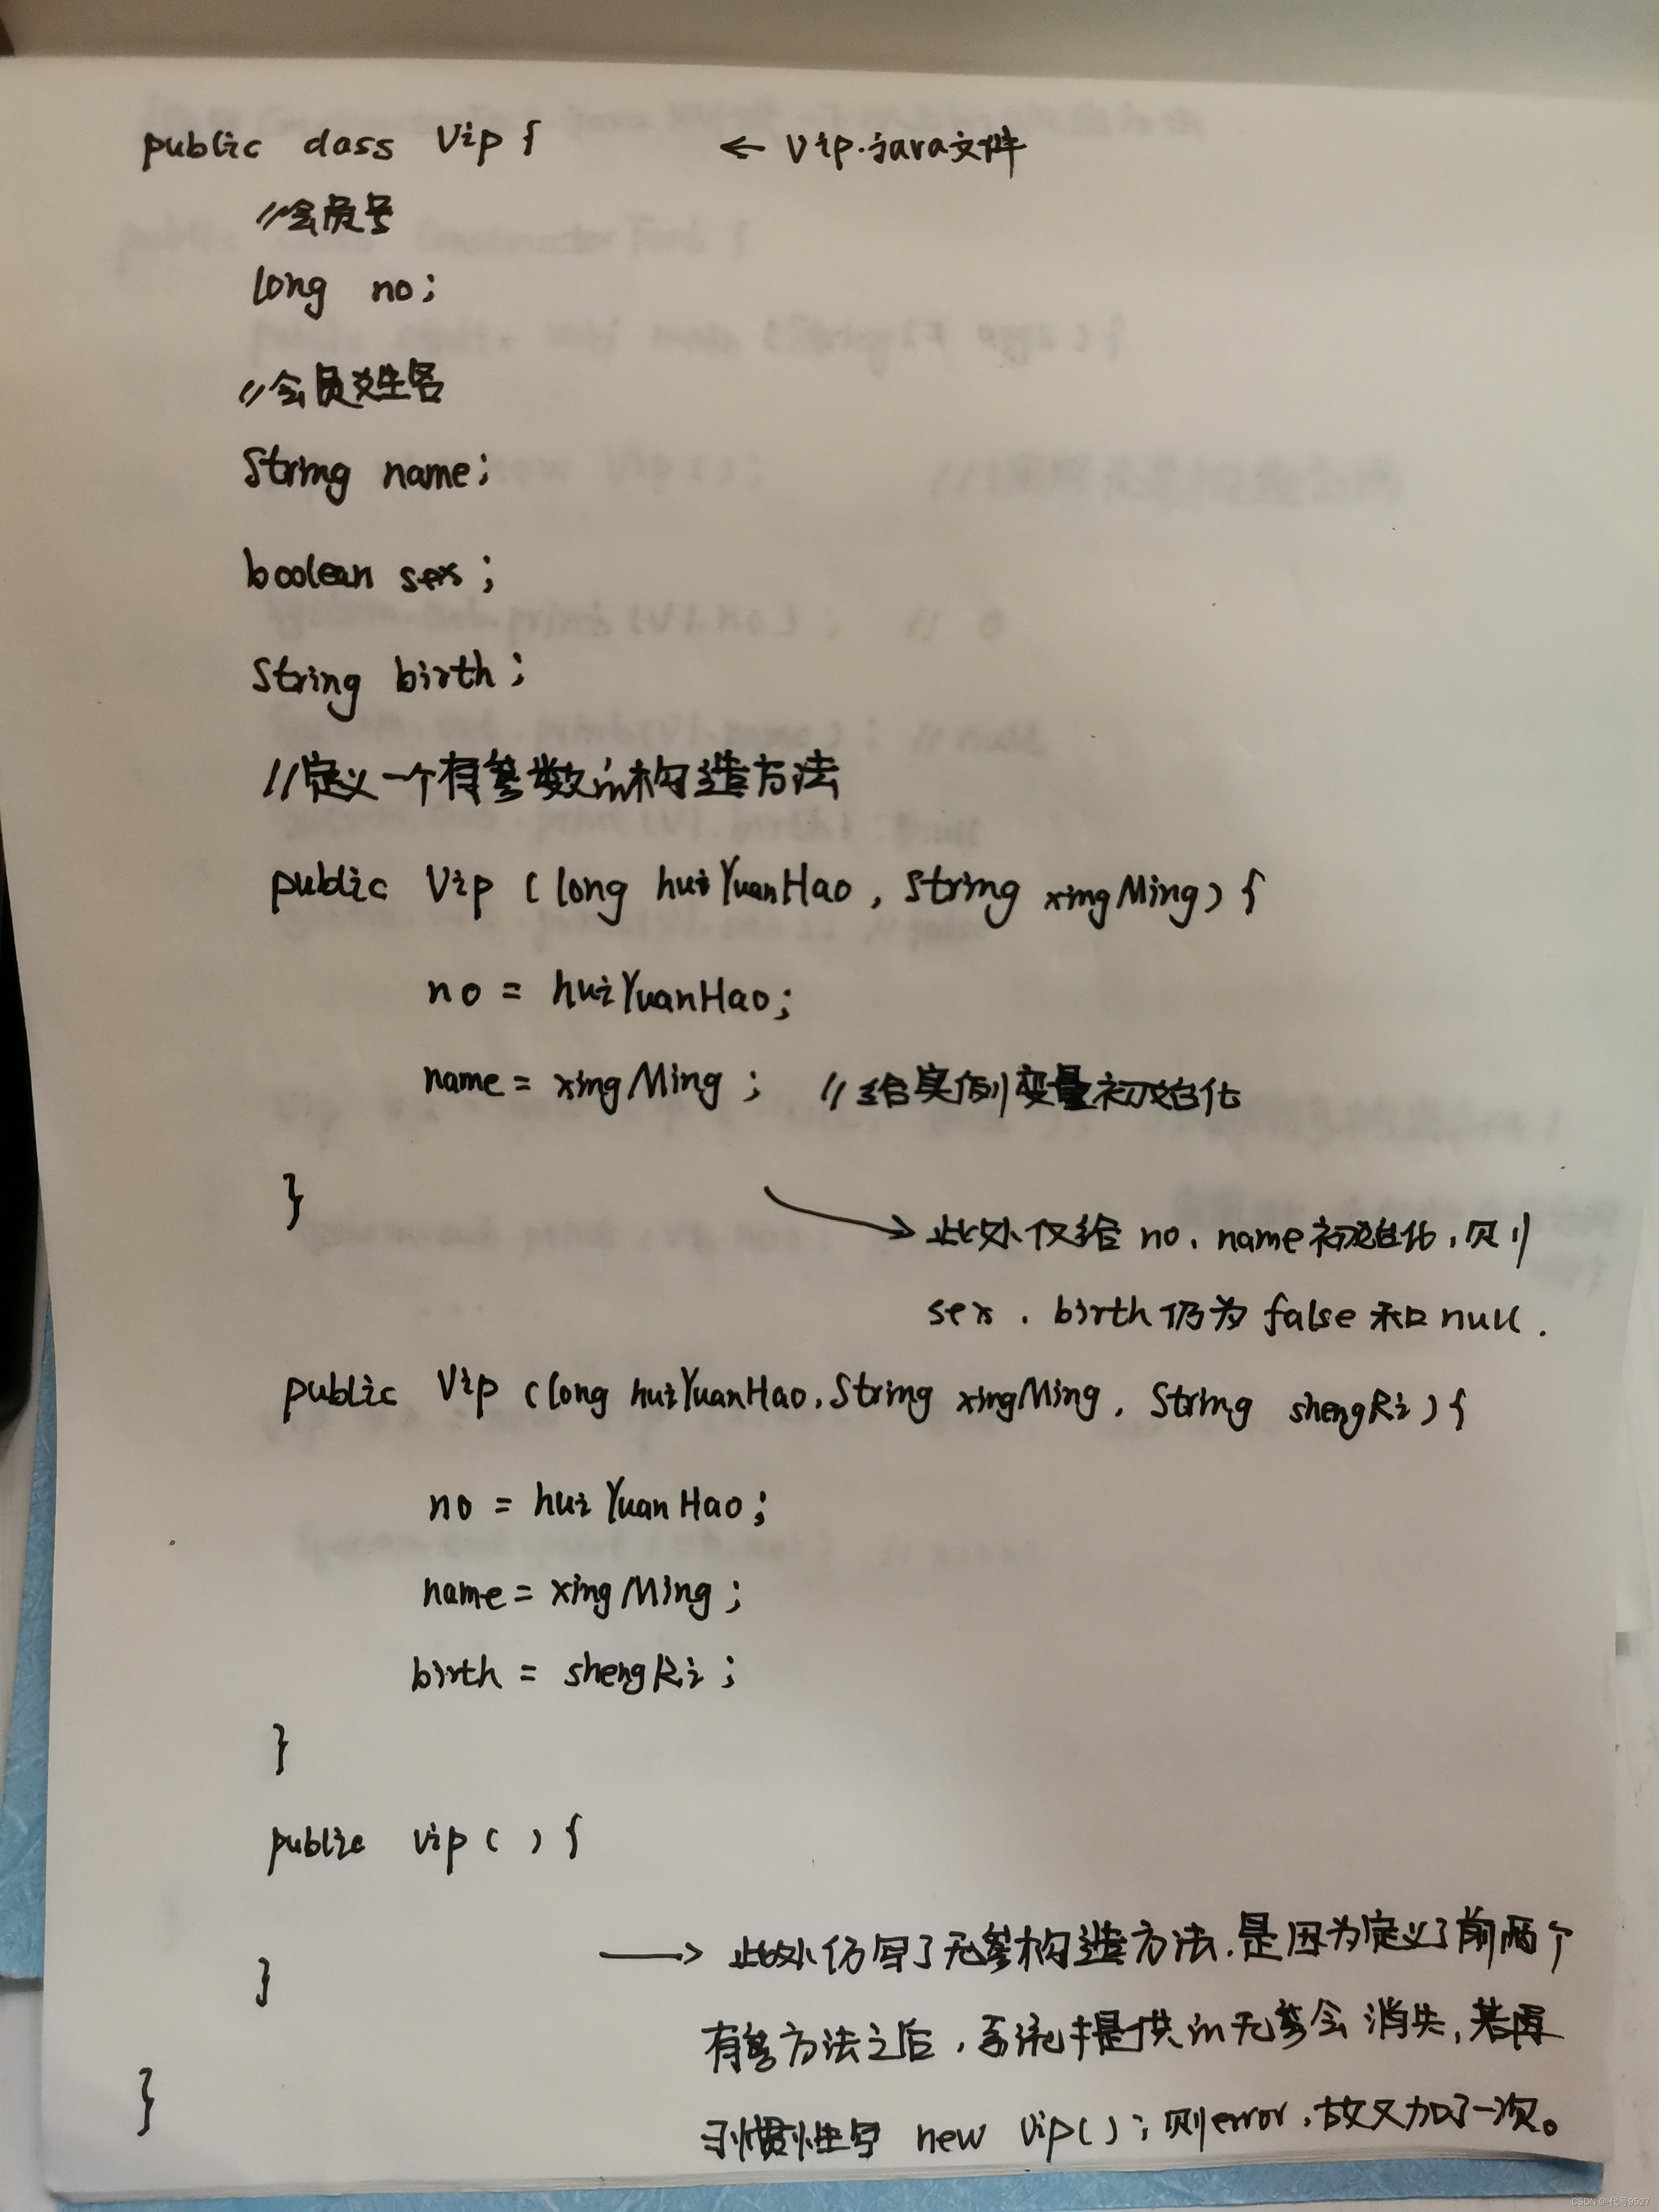 public class Vip {  ← Vip.java文件
//会员号
long no;
//会员姓名
String name;
boolean sex;
String birth;
//定义一个有参数的构造方法
public Vip (long huiYuanHao, String xingMing) {
no = huiYuanHao;
name = xingMing; //给实例变量初始化
}
→ 此处仅给 no、name初始化,则
sex、birth仍为 false 和 null.
public Vip (long huiYuanHao, String xingMing, String shengRi) {
no = huiYuanHao;
name = xingMing;
birth = shengRi;
}
public vip ( ) {
→ 此处仍写了无参构造方法,是因为定义了前两个
}
有参方法之后,系统提供的无参会消失,若再
}
习惯性写 new Vip(); 则error,故又加了一次。
CSDN @代号9527